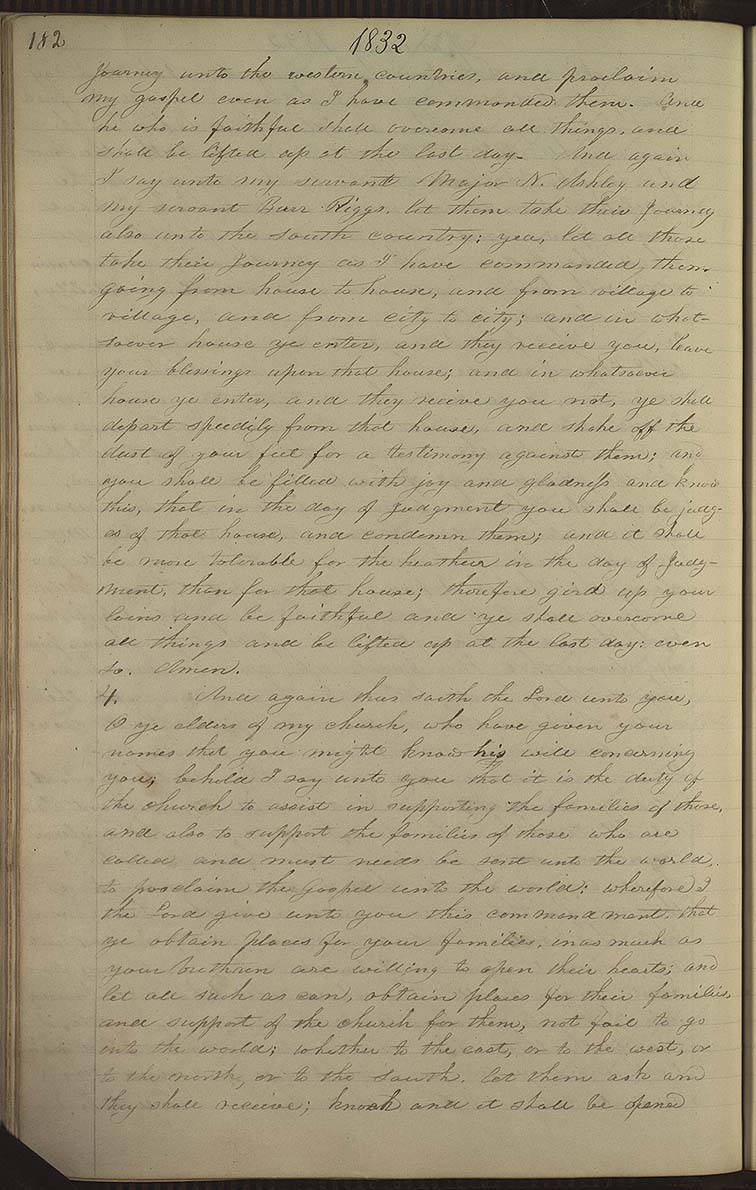 182
1832
Journey unto the western countries, and proclaim
my gospel even as I have commanded them. And
he who is faithful shall overcome all things, and
shall be lifted up at the last day. And again
I say unto my servant Major N. Ashley and
my servant Burr Riggs, let them take their Journey
also unto the south country; yea, let all those
take their Journey as I have commanded them.
going from house to house, and from village to
village, and from city to city; and in what-
soever house ye enter, and they receive you, leave
your blessings upon that house; and in whatsoever
house ye enter, and they recive you not, ye shall
depart speedily from that house, and shake off the
dust of your feet for a testimony against them; and
you shall be filled with joy and gladness and know
this, that in the day of Judgment you shall be judg-
es of that house, and condemn them; and it shall
be more tolerable for the heathen in the day of Judg-
ment, than for that house; therefore gird up your
loins and be faithful and ye shall overcome
all things and be lifted up at the last day: even
so. Amen.
4. And again thus saith the Lord unto you,
O ye elders of my church, who have given your
names that you might know his will concerning
you; behold I say unto you that it is the duty of
the church to assist in supporting the families of those,
and also to support the families of those who are
called and must needs be sent unto the world,
to proclaim the Gospel unto the world: wherefore I
the Lord give unto you this commandment, that
ye obtain places for your families, inasmuch as
your brethren are willing to open their hearts; and
let all such as can, obtain places for their families,
and support of the church for them, not fail to go
into the world; whether to the east, or to the west, or
to the north, or to the south. let them ask and
they shall receive; knock and it shall be opened